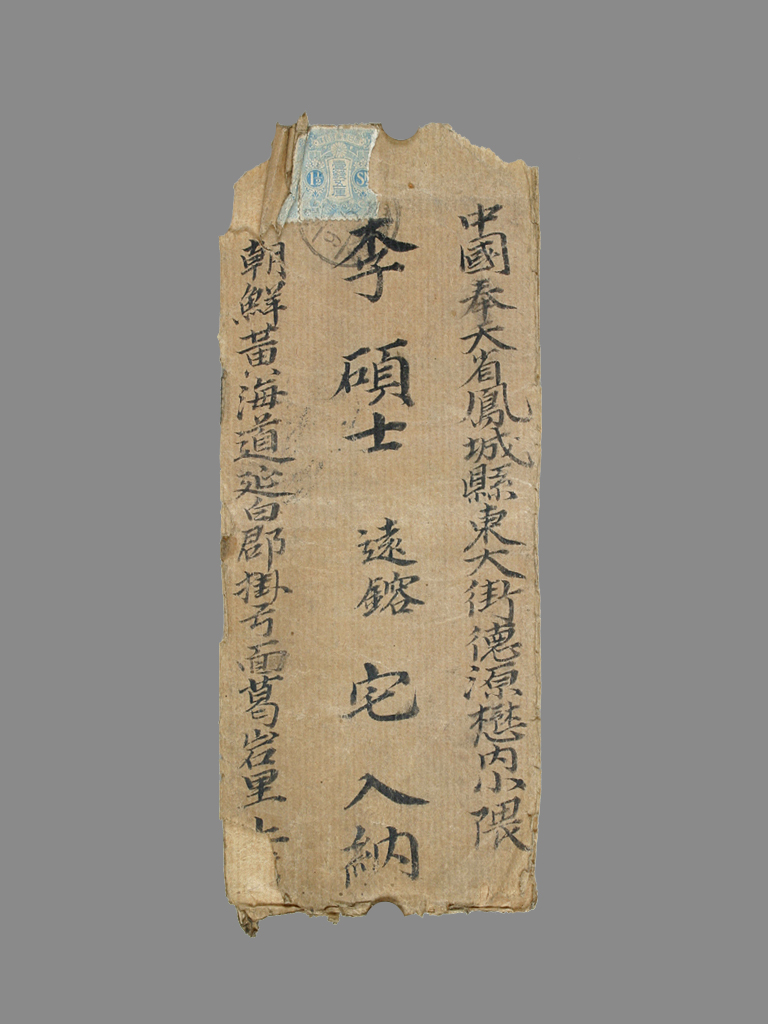 中國奉天省鳳城縣東大街德源懋內小隈
李碩士遠鎔宅入納
朝鮮黃海道延白郡掛弓面葛岩里上
1½ SN